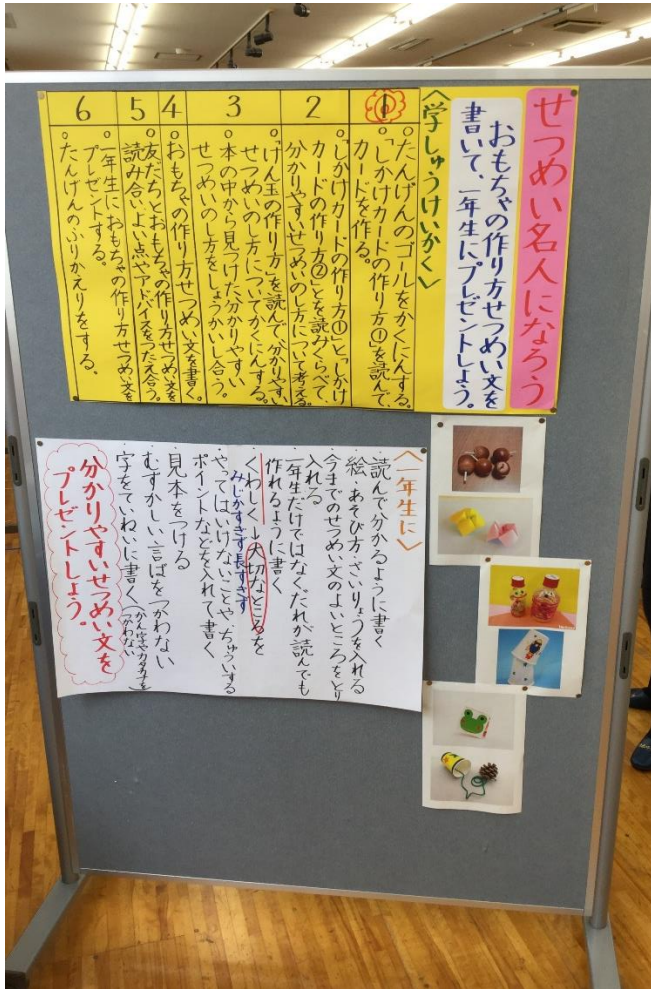 せつめい名人になろう
おもちゃの作り方せつめい文を
書いて、一年生にプレゼントしよう。
〈学しゅうけいかく〉
1
○たんげんのゴールをかくにんする。
○「しかけカードの作り方①」を読んで、
カードを作る。
2
○「しかけカードの作り方①」と「しかけ
カードの作り方②」とを読みくらべて、
分かりやすいせつめいのし方について考える。
3
○「けん玉の作り方」を読んで、分かりやすい
せつめいのし方についてかくにんする。
○本の中から見つけた、分かりやすい
せつめいのし方をしょうかいし合う。
4
○おもちゃの作り方せつめい文を書く。
5
○友だちとおもちゃの作り方せつめい文を
読み合い、よい点やアドバイスをつたえ合う。
6
○一年生におもちゃの作り方せつめい文を
プレゼントする。
○たんげんのふりかえりをする。
〈一年生に〉
・読んで分かるように書く
・絵・あそび方・ざいりょうを入れる
・今までのせつめい文のよいところをとり
入れる
・一年生だけではなく、だれが読んでも
作れるように書く
・くわしく→大切なところを
みじかすぎず長すぎず
・やってはいけないことや、ちゅういする
ポイントなどを入れて書く、
・見本をつける
・むずかしい言ばをつかわない
・字をていねいに書く(かん字やカタカナを
つかわない)
分かりやすいせつめい文を
プレゼントしよう。